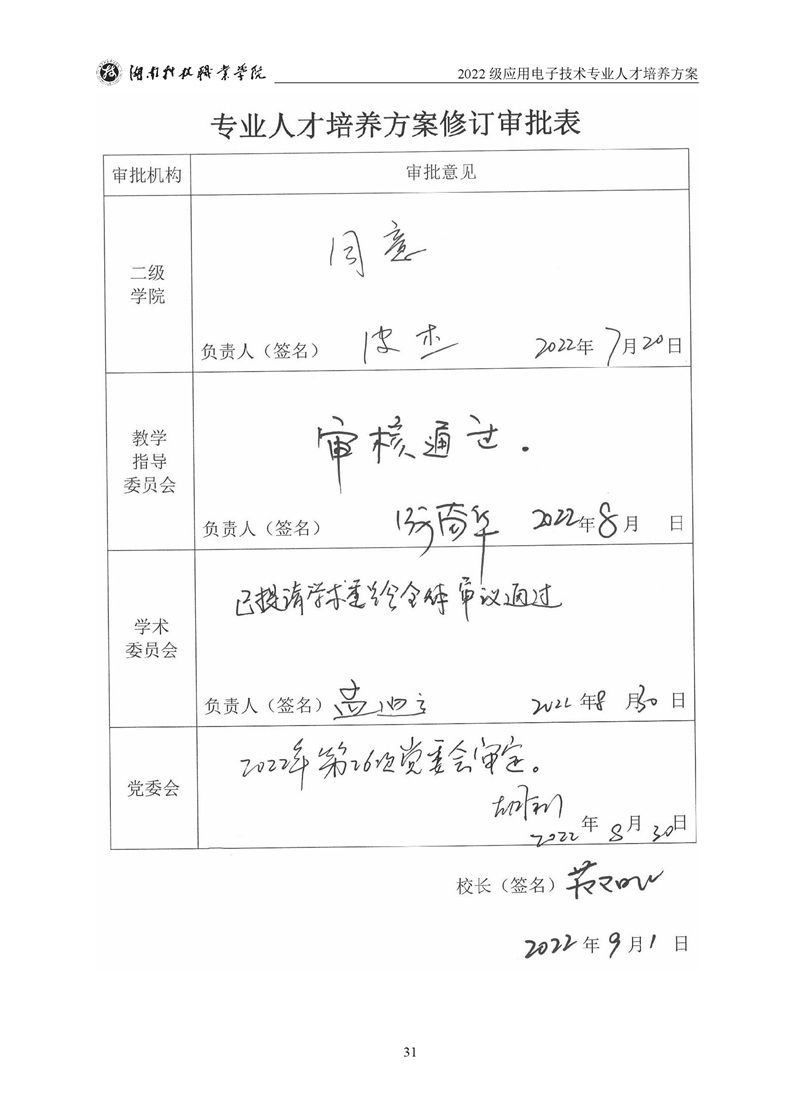 湖南科技职业学院 2022 级应用电子技术专业人才培养方案
专业人才培养方案修订审批表
审批机构 审批意见
同意
二级
学院
负责人（签名） 皮杰 2022年 7月20日
审核通过.
教学
指导
委员会
负责人（签名） 2022年8月 日
已提请学术委员会全体审议通过
学术
委员会
负责人（签名） 2022年8月30日
2022年第26次党委会审定。
党委会
2022年8月30日
校长（签名）
2022年9月1日
31